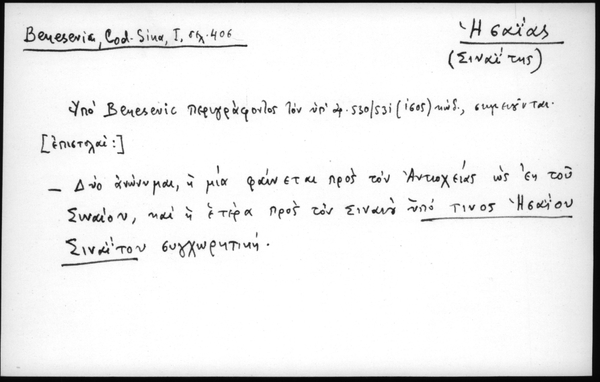 Benesevic, Cod. Sina, I, σελ. 406
Ἡσαΐας
(Σιναΐτης)
Ὑπὸ Benesevic περιγράφοντος τὸν ὑπ' ἀρ. 530/531 (1505) κώδ., σημειοῦνται.
[ἐπιστολαὶ:]
— Δύο ἀνώνυμαι, ἡ μία φαίνεται πρὸς τὸν Ἀντιοχείας ὡς ἐκ τοῦ
Σιναίου, καὶ ἡ ἑτέρα πρὸς τὸν Σιναίου ὑπό τινος Ἡσαΐου
Σιναΐτου συγχωρητική.